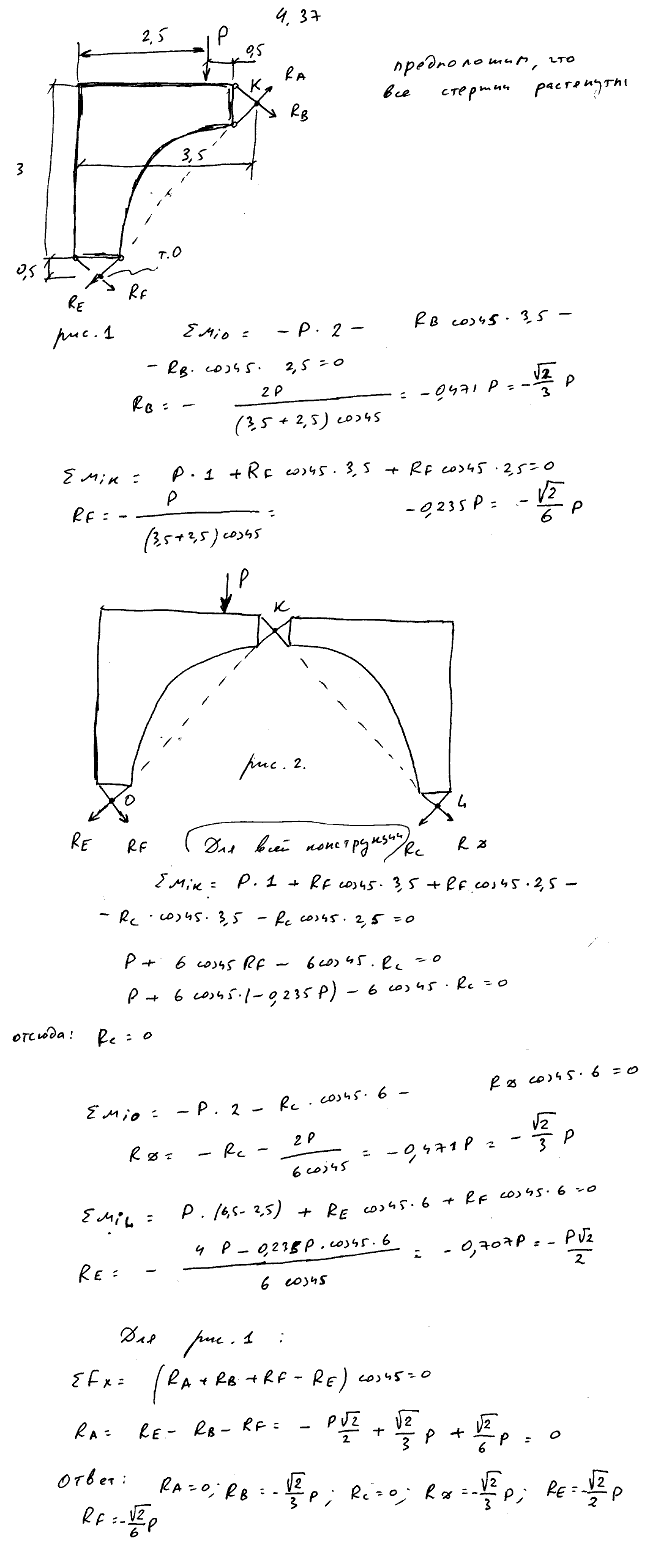 4.37
2,5
P
0,5
предположим, что
все стержни растянуты
K
R_A
R_B
3
3,5
0,5
т.О
R_E
R_F
рис.1
Σ M_iO = - P · 2 - R_B cos45 · 3,5 -
- R_B · cos45 · 2,5 = 0
R_B = - 2P / ((3,5+2,5) cos45) = -0,471 P = - √2/3 P
Σ M_iK = P · 1 + R_F cos45 · 3,5 + R_F cos45 · 2,5 = 0
R_F = - P / ((3,5+2,5) cos45) = -0,235P = - √2/6 P
P
K
рис. 2.
O
L
R_E
R_F
Для всей конструкции
R_C
R_D
Σ M_iK = P · 1 + R_F cos45 · 3,5 + R_F cos45 · 2,5 -
- R_C · cos45 · 3,5 - R_C cos45 · 2,5 = 0
P + 6 cos45 R_F - 6 cos45 · R_C = 0
P + 6 cos45 · (-0,235P) - 6 cos45 · R_C = 0
отсюда: R_C = 0
Σ M_iO = - P · 2 - R_C · cos45 · 6 - R_D cos45 · 6 = 0
R_D = - R_C - 2P / (6 cos45) = -0,471P = - √2/3 P
Σ M_iL = P · (6,5-2,5) + R_E cos45 · 6 + R_F cos45 · 6 = 0
R_E = - (4 P - 0,235P · cos45 · 6) / (6 cos45) = - 0,707P = - P√2/2
Для рис. 1 :
Σ F_x = (R_A + R_B + R_F - R_E) cos45 = 0
R_A = R_E - R_B - R_F = - P√2/2 + √2/3 P + √2/6 P = 0
Ответ: R_A = 0; R_B = -√2/3 P; R_C = 0; R_D = -√2/3 P; R_E = -√2/2 P
R_F = -√2/6 P